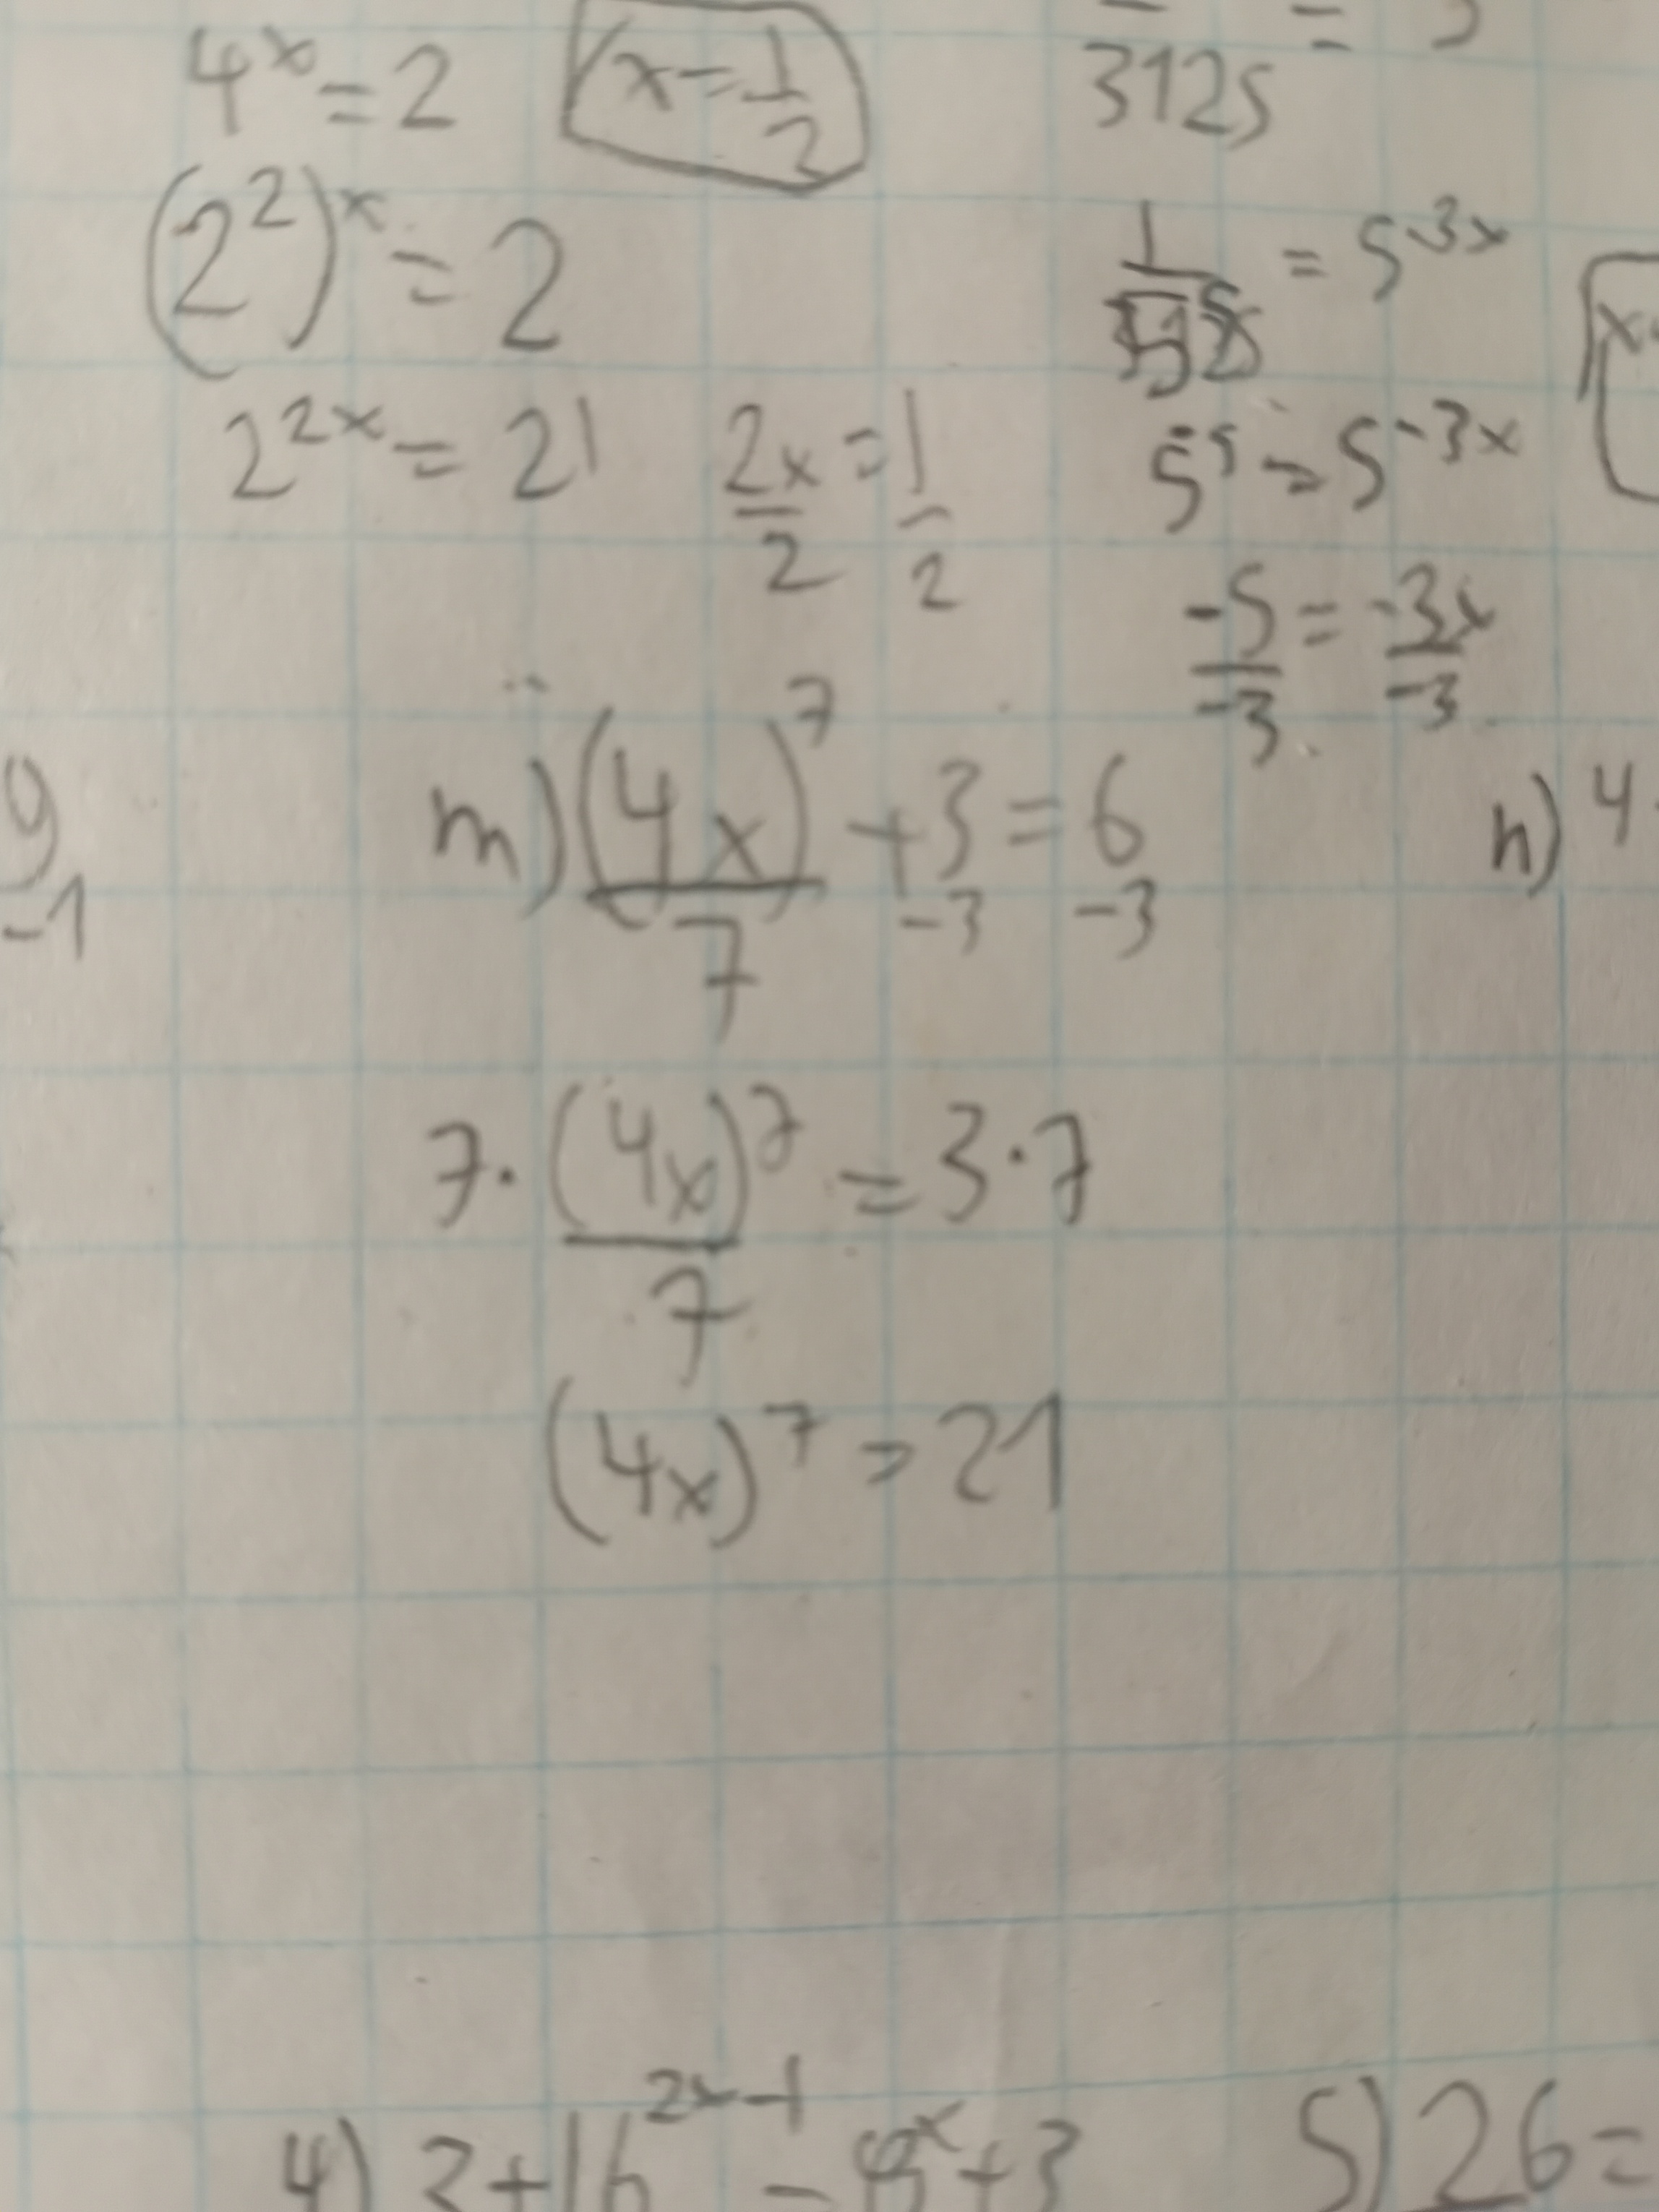 4^x = 2
x = 1/2
(2^2)^x = 2
2^2x = 21
2x/2 = 1/2
3125
= 5^-3x
5^-5 = 5^-3x
-5/-3 = -3x/-3
9
-1
m) (4x)^7/7 + 3 = 6
-3 -3
n) 4
7 · (4x)^7/7 = 3 · 7
(4x)^7 = 21
4) 3 + 16^2x-1
+ 3
5) 26 =